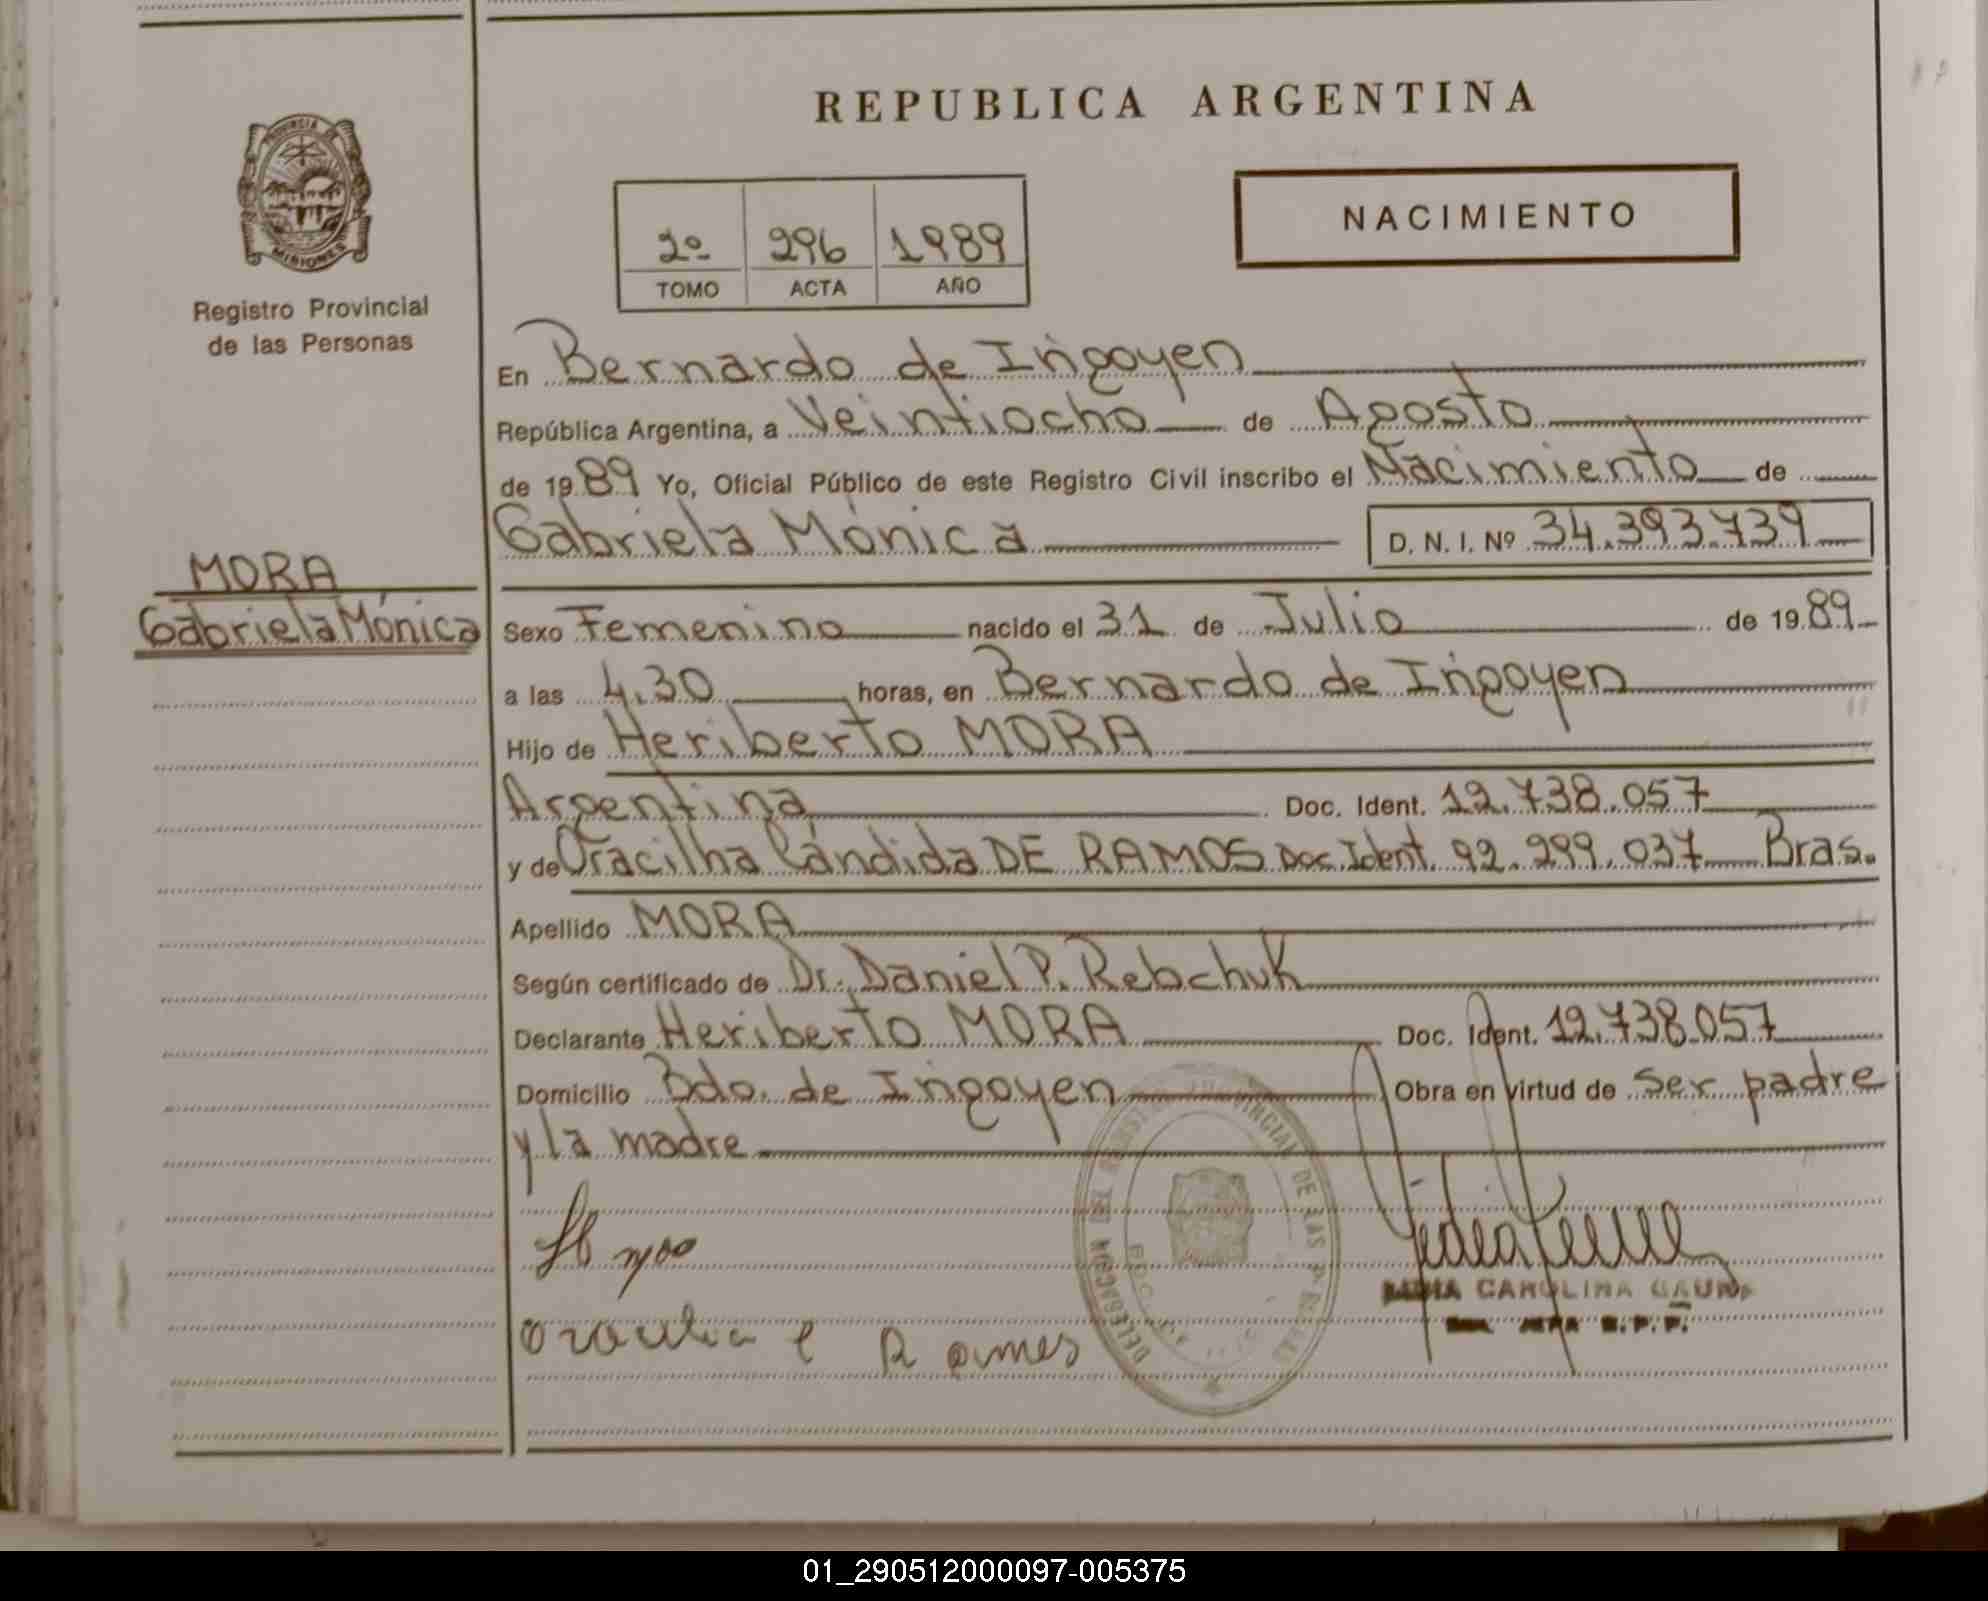 REPUBLICA ARGENTINA
PROVINCIA DE
MISIONES
Registro Provincial
de las Personas
2º 296 1989
TOMO ACTA AÑO
NACIMIENTO
En Bernardo de Irigoyen
República Argentina, a Veintiocho de Agosto
de 1989 Yo, Oficial Público de este Registro Civil inscribo el Nacimiento de
Gabriela Mónica D. N. I. Nº 34.393.739
MORA
Gabriela Mónica
Sexo Femenino nacido el 31 de Julio de 1989
a las 4.30 horas, en Bernardo de Irigoyen
Hijo de Heriberto MORA
Argentina Doc. Ident. 12.738.057
y de Oracilha Cándida DE RAMOS Doc. Ident. 92.299.037 Bras.
Apellido MORA
Según certificado de Dr. Daniel P. Rebchuk
Declarante Heriberto MORA Doc. Ident. 12.738.057
Domicilio Bdo. de Irigoyen Obra en virtud de ser padre
y la madre
DELEGACION DEL REGISTRO PROVINCIAL DE LAS
CAROLINA
R.P.P.
01_290512000097-005375